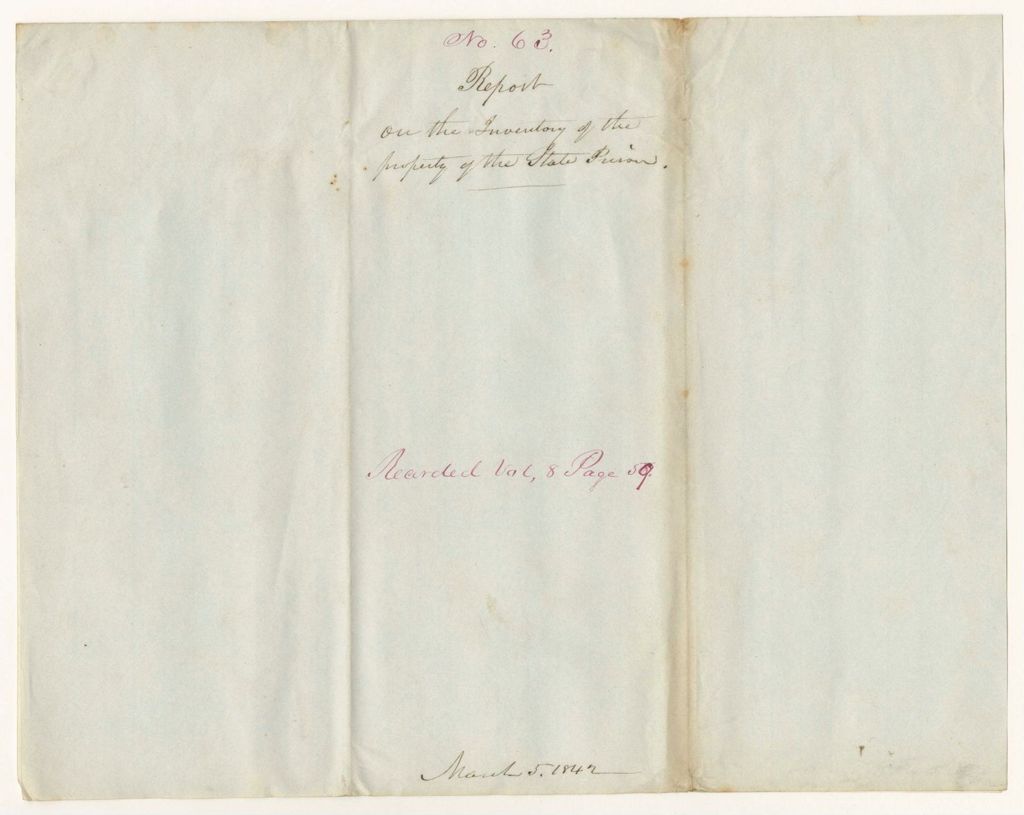 No. 63.
Report
on the Inventory of the
property of the State Prison.
Recorded Vol, 8 Page 59.
March 5. 1842